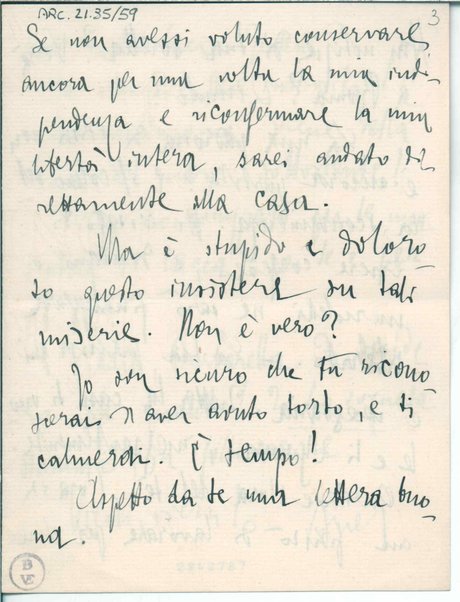 ARC. 21.35/59
3
Se non avessi voluto conservare
ancora per una volta la mia indi-
pendenza e riconfermare la mia
libertà intera, sarei andato di-
rettamente alla casa.
Ma è stupido e doloro-
so questo insistere su tali
miserie. Non è vero?
Io son sicuro che tu ricono
scerai d'aver avuto torto, e ti
calmerai. È tempo!
Aspetto da te una lettera buo-
na.
B
VE